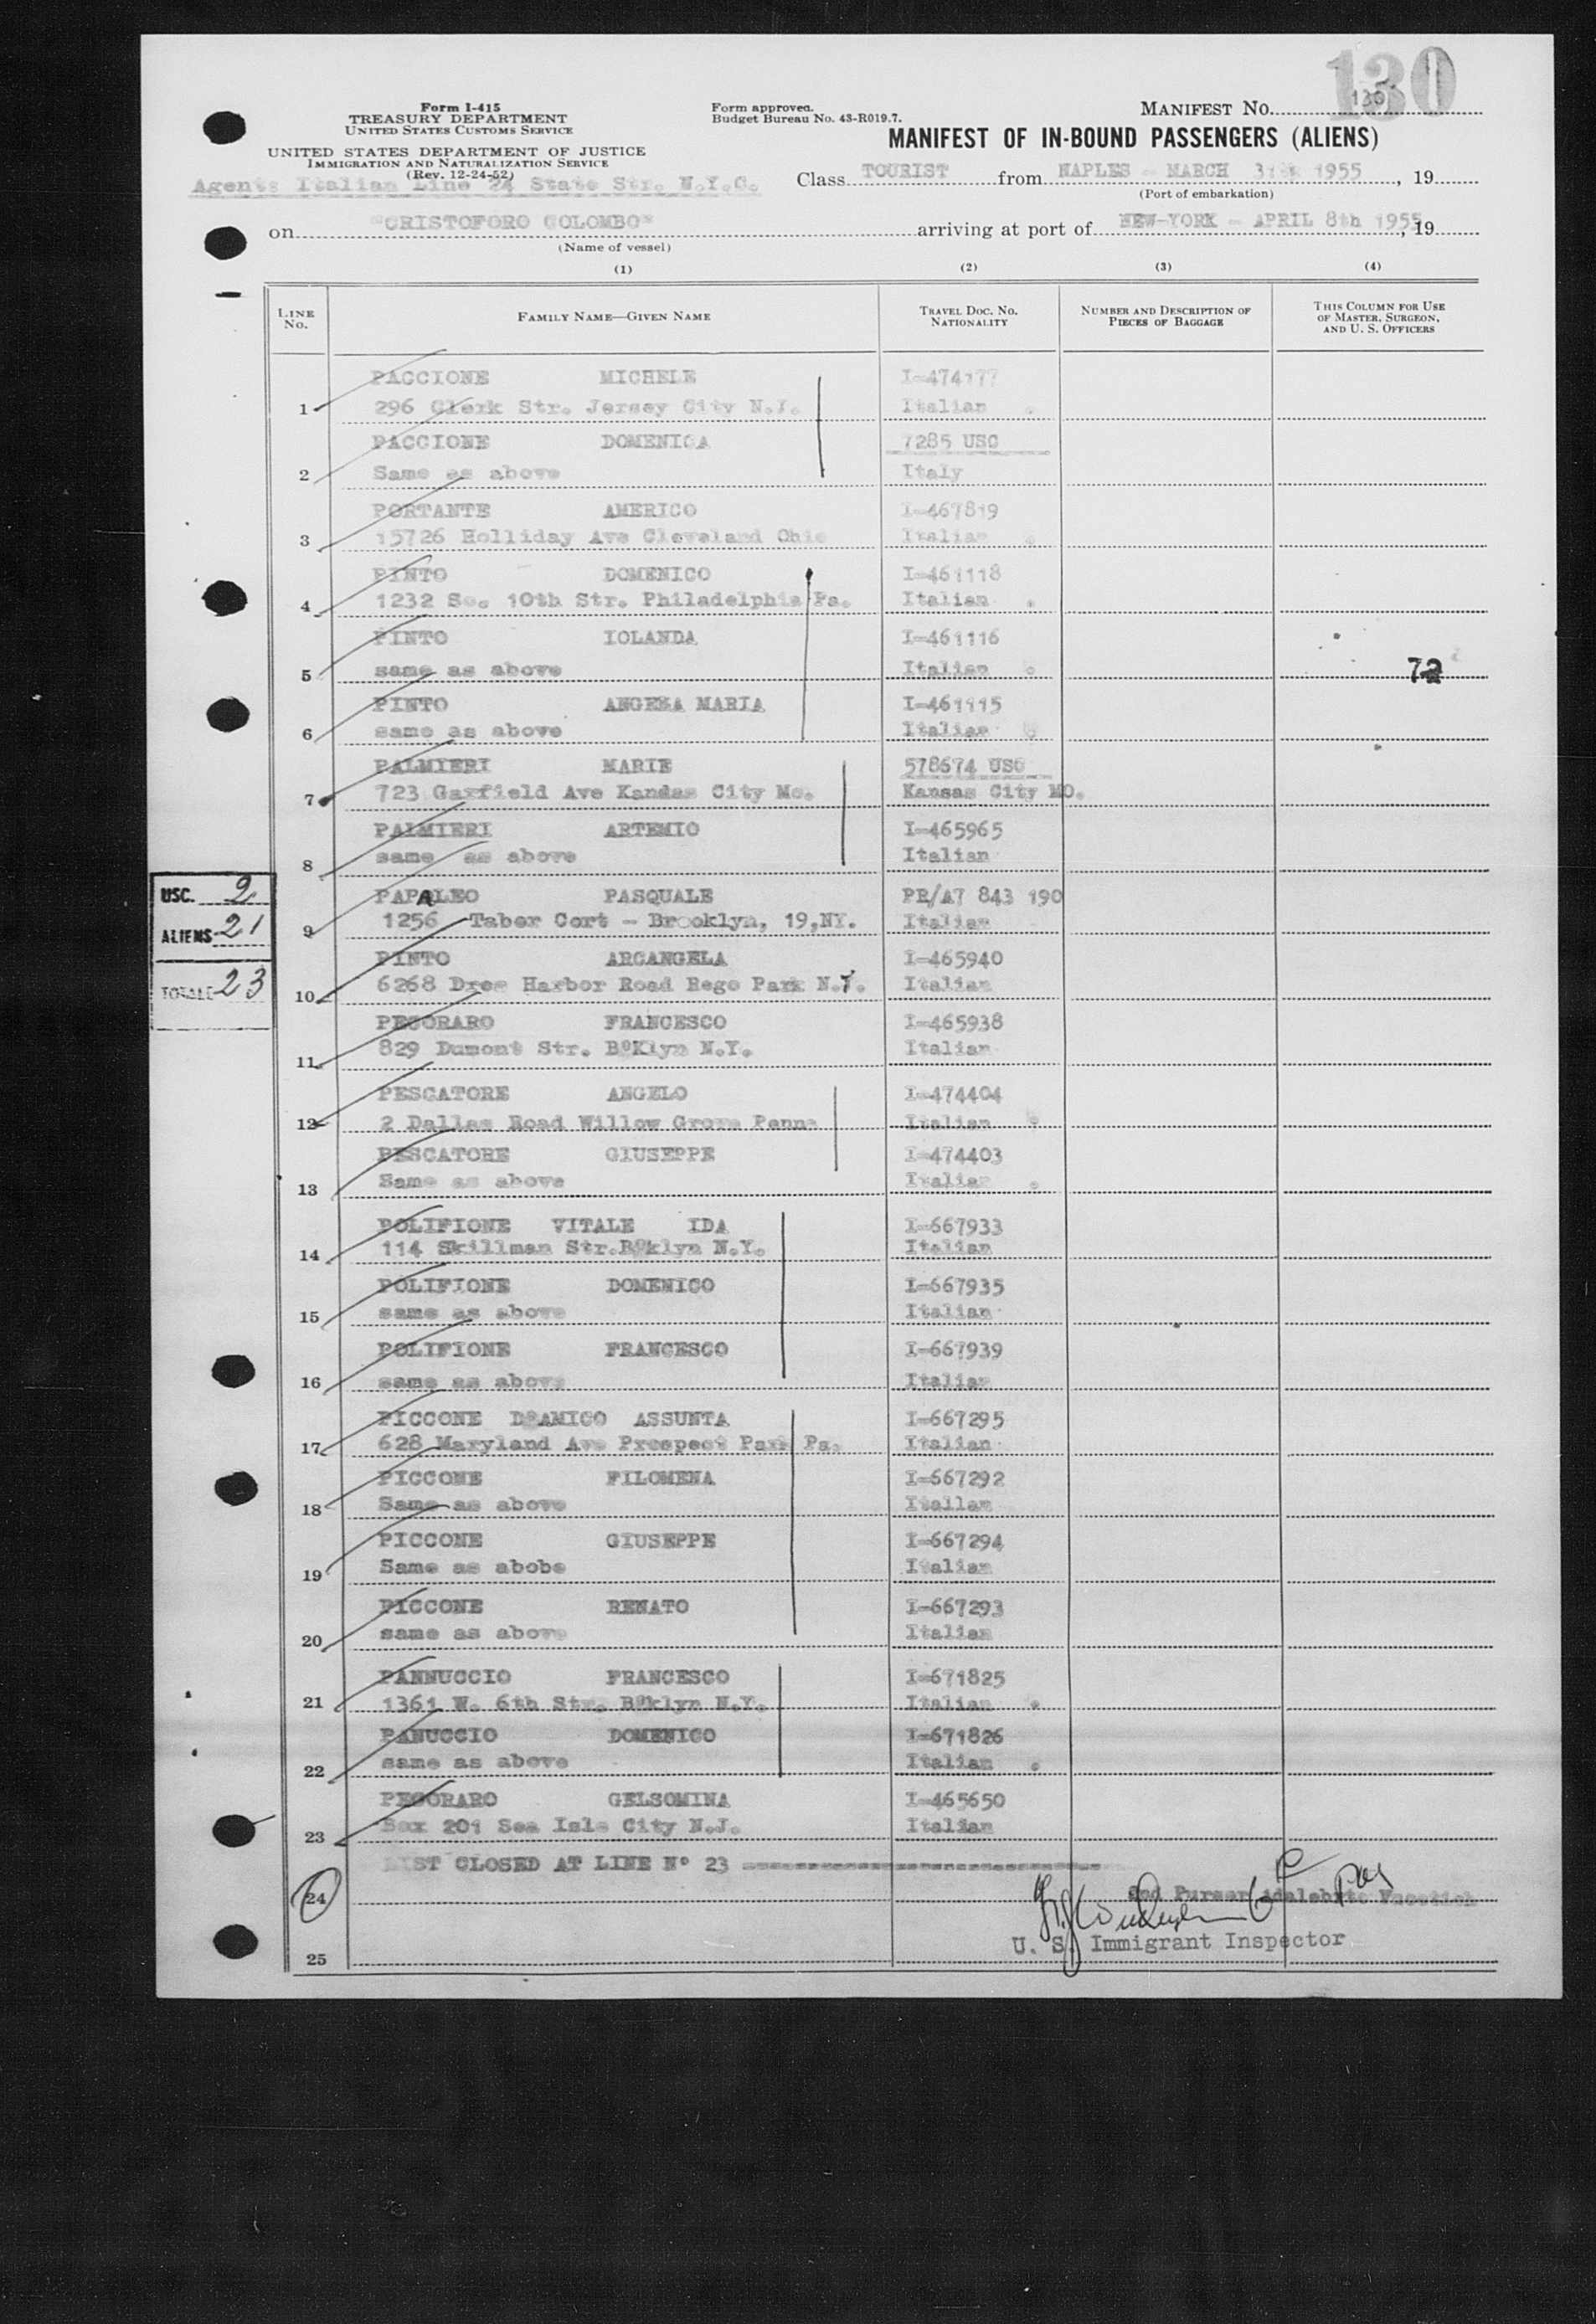 130
Form I-415
TREASURY DEPARTMENT
UNITED STATES CUSTOMS SERVICE
UNITED STATES DEPARTMENT OF JUSTICE
IMMIGRATION AND NATURALIZATION SERVICE
(Rev. 12-24-52)
Form approved.
Budget Bureau No. 43-R019.7.
MANIFEST NO. 130
MANIFEST OF IN-BOUND PASSENGERS (ALIENS)
Agents Italian Line 24 State Str. N.Y.C.
Class TOURIST from NAPLES - MARCH 31st 1955, 19
(Port of embarkation)
on "CRISTOFORO COLOMBO" arriving at port of NEW-YORK - APRIL 8th 1955, 19
(Name of vessel)
(1) (2) (3) (4)
LINE No. FAMILY NAME—GIVEN NAME TRAVEL DOC. NO. NATIONALITY NUMBER AND DESCRIPTION OF PIECES OF BAGGAGE THIS COLUMN FOR USE OF MASTER, SURGEON, AND U. S. OFFICERS
PACCIONE MICHELE I-474177
1 296 Clerk Str. Jersey City N.J. Italian
PACCIONE DOMENICA 7285 USC
2 Same as above Italy
PORTANTE AMERICO I-467819
3 15726 Holliday Ave Cleveland Ohio Italian
PINTO DOMENICO I-461118
4 1232 So. 10th Str. Philadelphia Pa. Italian
PINTO IOLANDA I-461116
5 same as above Italian 72
PINTO ANGELA MARIA I-461115
6 same as above Italian
PALMIERI MARIE 578674 USC
7 723 Garfield Ave Kandas City Mo. Kansas City MO.
PALMIERI ARTEMIO I-465965
8 same as above Italian
PAPALEO PASQUALE PR/AT 843 190
9 1256 Taber Cort - Brooklyn, 19,NY. Italian
USC. 2
ALIENS 21
TOTALE 23
PINTO ARCANGELA I-465940
10 6268 Dree Harbor Road Rego Park N.Y. Italian
PECORARO FRANCESCO I-465938
11 829 Dumont Str. BoKlyn N.Y. Italian
PESCATORE ANGELO I-474404
12 2 Dallas Road Willow Grove Penna Italian
PESCATORE GIUSEPPE I-474403
13 Same as above Italian
POLIFIONE VITALE IDA I-667933
14 114 Skillman Str.Boklyn N.Y. Italian
POLIFIONE DOMENICO I-667935
15 same as above Italian
POLIFIONE FRANCESCO I-667939
16 same as above Italian
PICCONE D'AMICO ASSUNTA I-667295
17 628 Maryland Ave Prospect Park Pa. Italian
PICCONE FILOMENA I-667292
18 Same as above Italian
PICCONE GIUSEPPE I-667294
19 Same as abobe Italian
PICCONE RENATO I-667293
20 same as above Italian
PANNUCCIO FRANCESCO I-671825
21 1361 W. 6th Str. Boklyn N.Y. Italian
PANUCCIO DOMENICO I-671826
22 same as above Italian
PECORARO GELSOMINA I-465650
23 Box 201 Sea Isle City N.J. Italian
LIST CLOSED AT LINE N° 23
24 2nd Purser
U. S. Immigrant Inspector
25